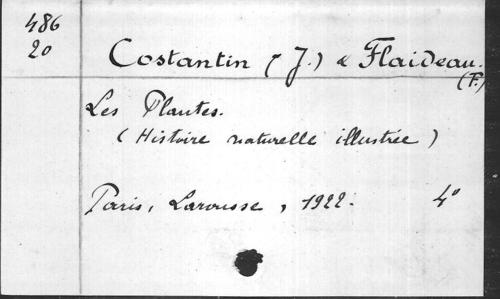 486
20
Costantin (J.) & Flaideau.
(F.)
Les Plantes.
(Histoire naturelle illustrée)
Paris, Larousse, 1922.
4°